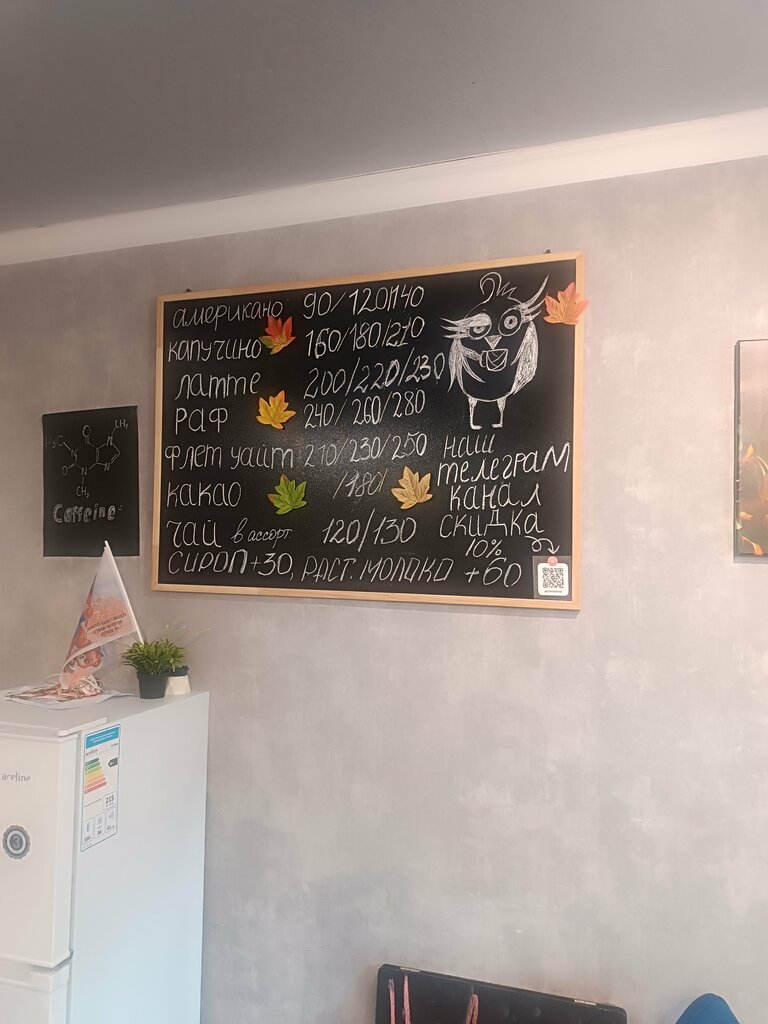 американо 90/120/140
капучино 160/180/210
латте 200/220/230
раф 240/260/280
флет уайт 210/230/250
какао /180/
чай в ассорт. 120/130
сироп+30, раст. молоко +60
наш
телеграм
канал
скидка
10%
H₃C
O
N
N
CH₃
O
N
N
CH₃
Caffeine
aceline
215